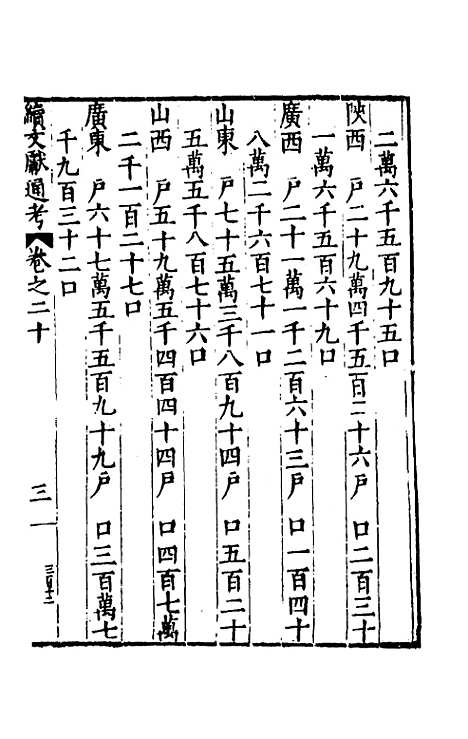 二萬六千五百九十五口
陜西　戶二十九萬四千五百二十六戶　口二百三十
一萬六千五百六十九口
廣西　戶二十一萬一千二百六十三戶　口一百四十
八萬二千六百七十一口
山東　戶七十五萬三千八百九十四戶　口五百二十
五萬五千八百七十六口
山西　戶五十九萬五千四百四十四戶　口四百七萬
二千一百二十七口
廣東　戶六十七萬五千五百九十九戶　口三百萬七
千九百三十二口
續文獻通考　卷之二十　三